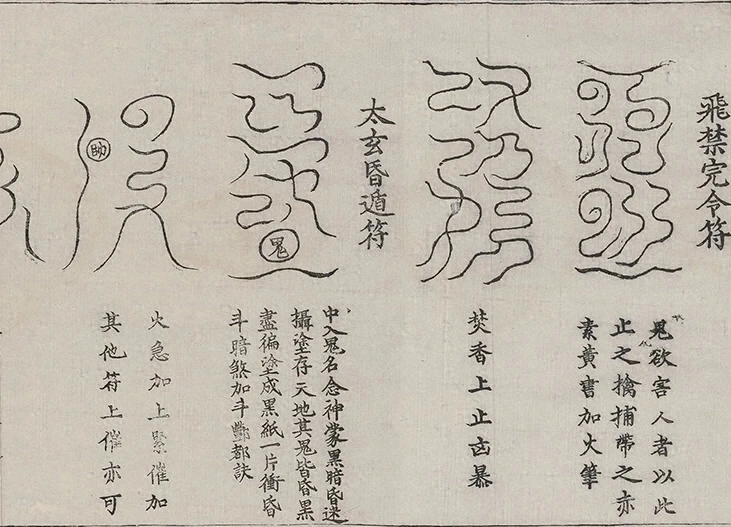 飛禁完令符
鬼欲害人者以此
止之擒捕帶之亦
素黃書加火筆
焚香上止凶暴
太玄昏遁符
鬼
中入鬼名念神蒙黑暗昏迷
攝塗存天地其鬼皆昏黑
盡徧塗成黑紙一片衝昏
斗暗煞加斗酆都訣
火急加上緊催加
其他符上催亦可